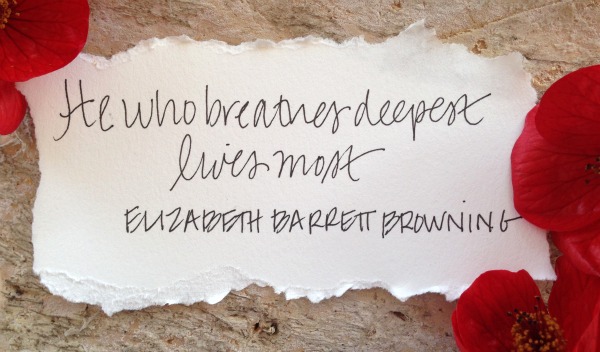 He who breathes deepest
lives most
ELIZABETH BARRETT BROWNING